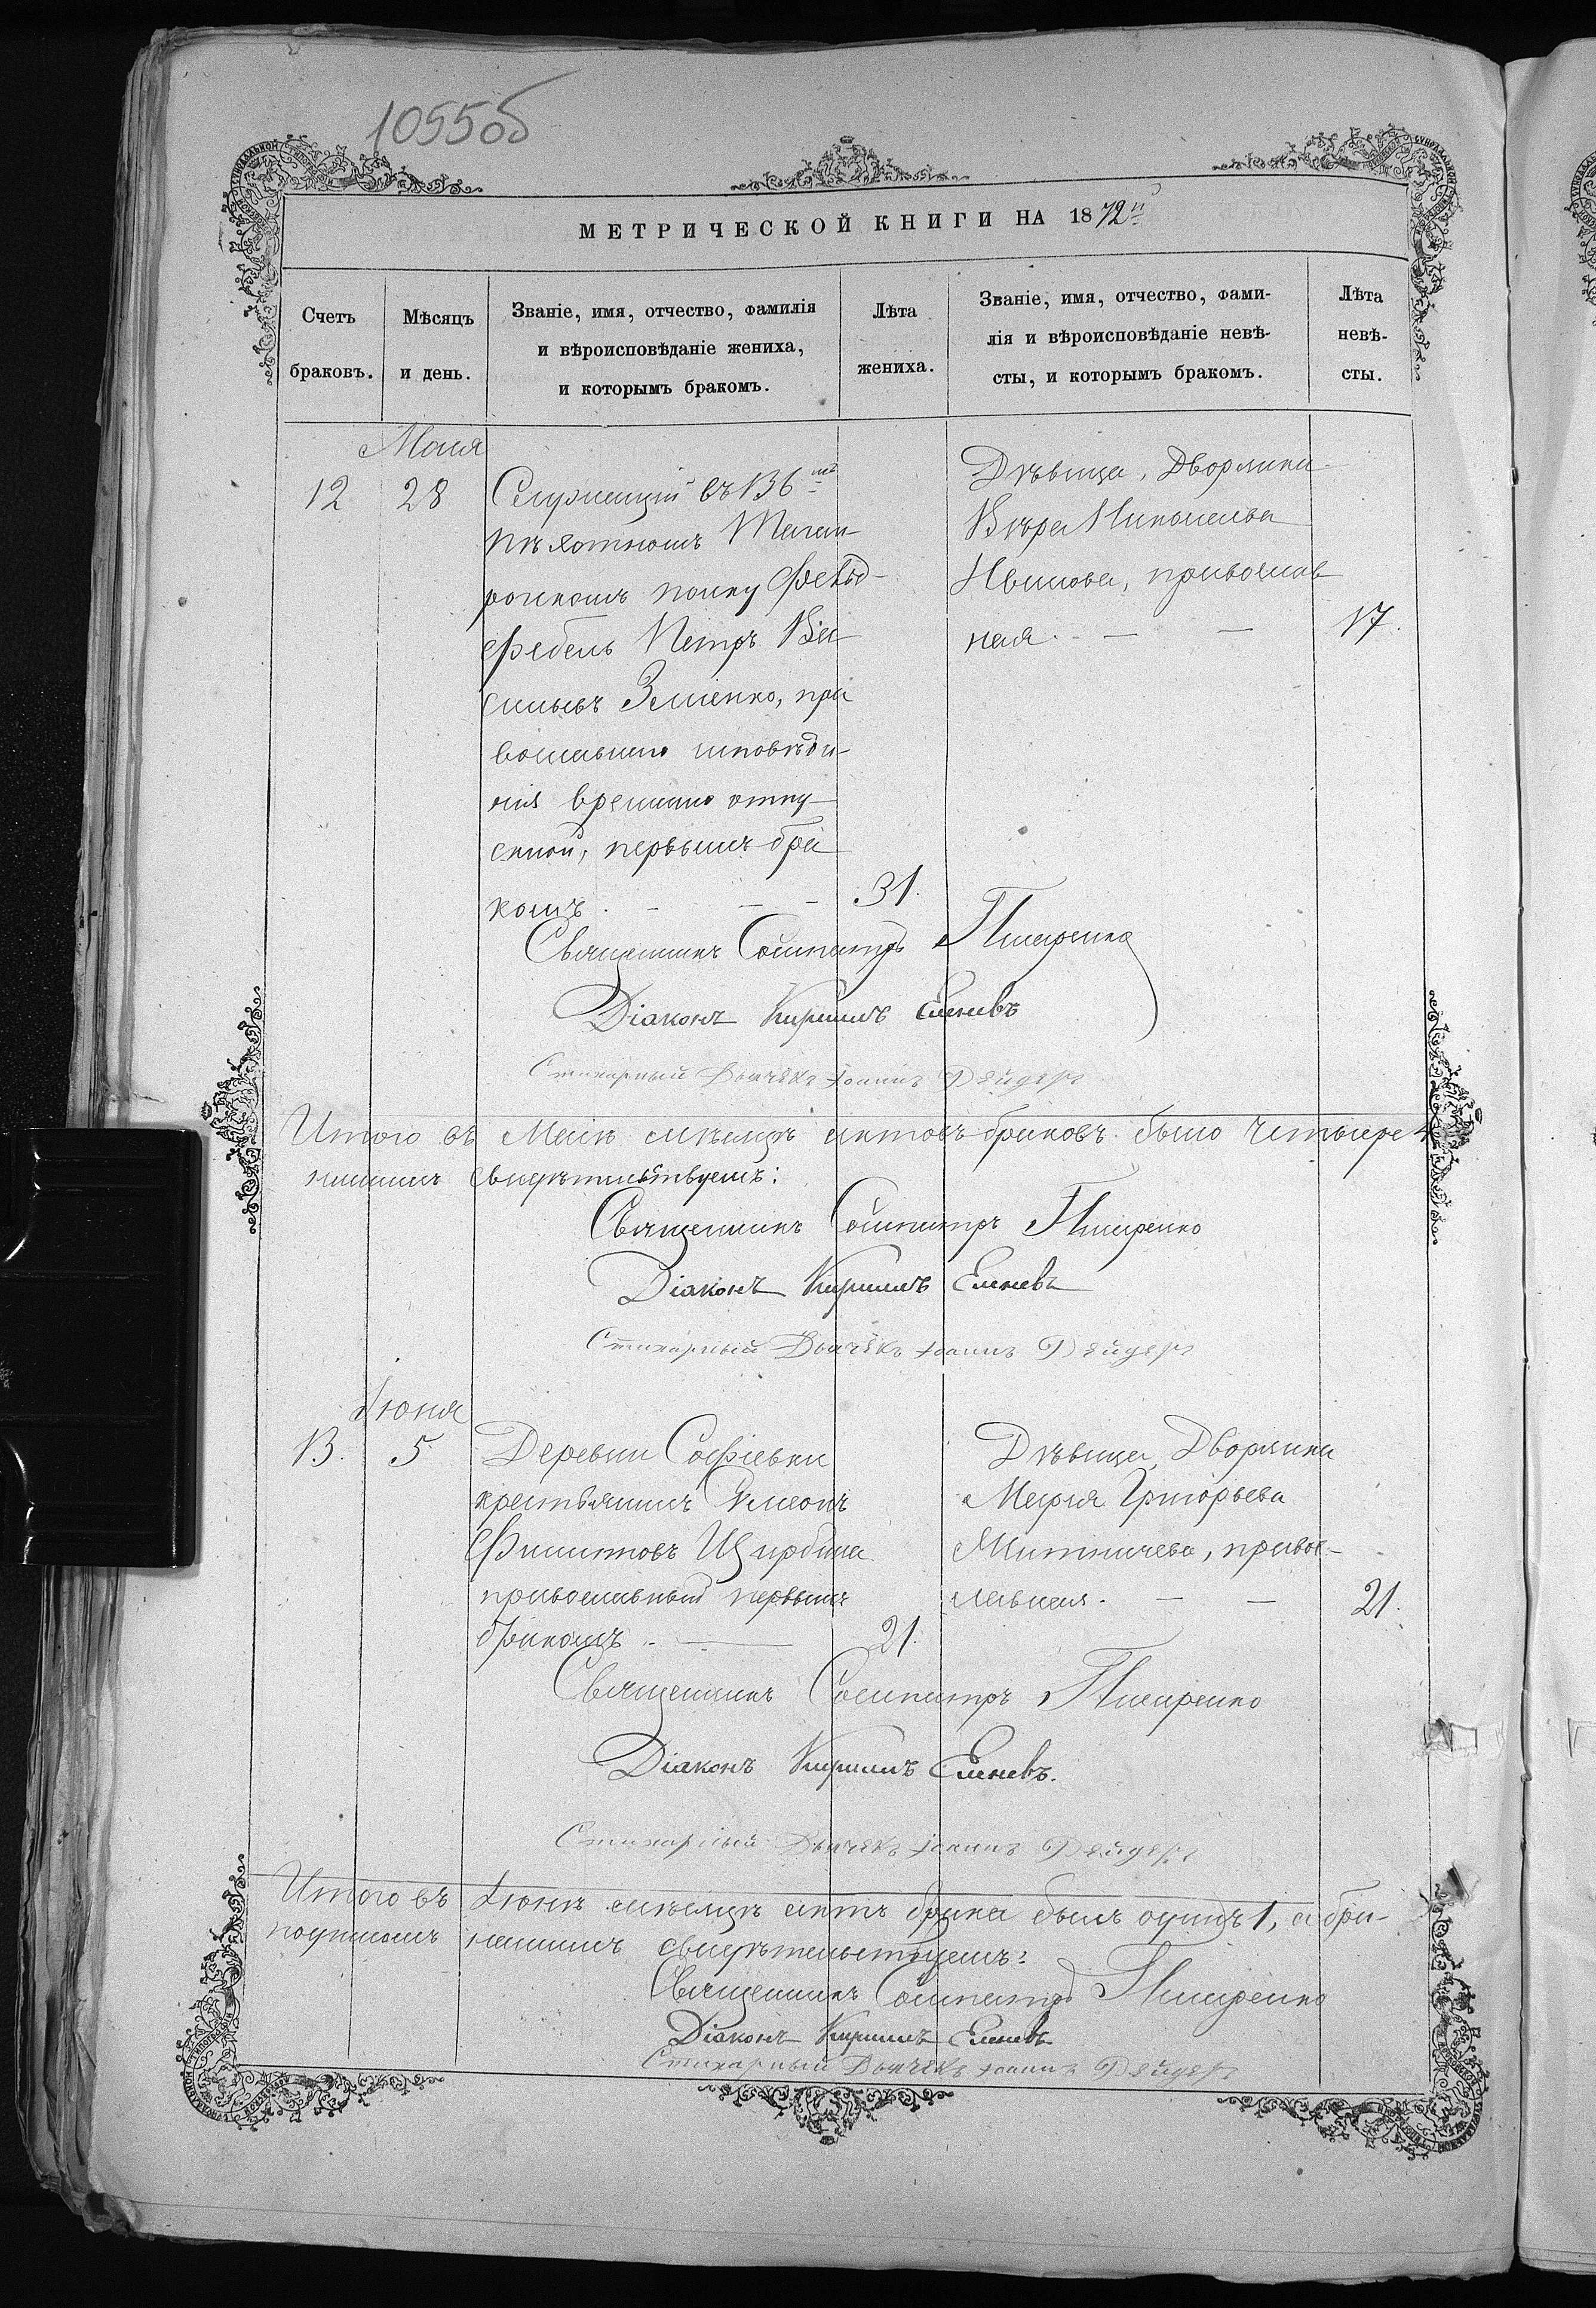 1055об
МЕТРИЧЕСКОЙ КНИГИ НА 1872й
Счетъ браковъ.
Мѣсяцъ и день.
Званіе, имя, отчество, фамилія
и вѣроисповѣданіе жениха,
и которымъ бракомъ.
Лѣта
жениха.
Званіе, имя, отчество, фами-
лія и вѣроисповѣданіе невѣ-
сты, и которымъ бракомъ.
Лѣта
невѣ-
сты.
Маія
12 28
Служащій въ 136мъ
Пѣхотномъ Таган-
рогскомъ полку Фельд-
фебель Петръ Ва
сильевъ Зміенко, пра
вославнаго исповѣда-
нія временно отпу-
скной, первымъ бра
комъ. 31.
Дѣвица, Дворянка
Вѣра Николаева
православ
ная. 17.
Священникъ Сосипатръ Писаренко
Діаконъ Кириллъ Еленевъ
Стихарный Дьячекъ Іоаннъ
Итого въ Маіѣ мѣсяцѣ актовъ браковъ было четыре 4
нашимъ свидѣтельствуемъ:
Священникъ Сосипатръ Писаренко
Діаконъ Кириллъ Еленевъ
Стихарный Дьячекъ Іоаннъ
Іюня
13. 5
Деревни Софіевки
крестьянинъ Симеонъ
Филиповъ Щирбина
православный первымъ
бракомъ. 21.
Дѣвица, Дворянка
Марія Григорьева
Митничева, правос-
лавная. 21.
Священникъ Сосипатръ Писаренко
Діаконъ Кириллъ Еленевъ.
Стихарный Дьячекъ Іоаннъ
Итого въ Іюнѣ мѣсяцѣ актъ брака былъ одинъ 1, а бра-
подписомъ нашимъ свидѣтельствуемъ:
Священникъ Сосипатръ Писаренко
Діаконъ Кириллъ Еленевъ
Стихарный Дьячекъ Іоаннъ